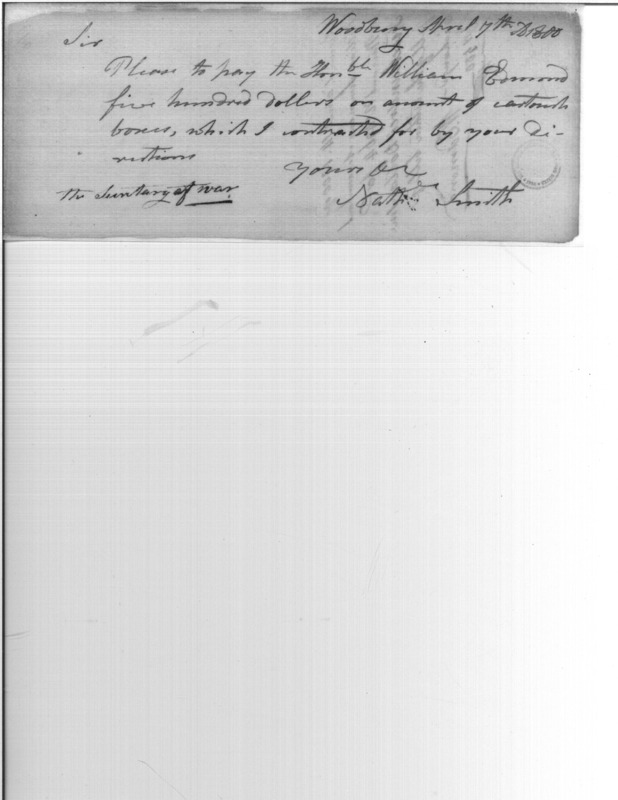 Woodbury April 7th 1800
Sir
Please to pay the Honble William Edmond
five hundred dollars on amount of cartouch
boxes, which I contracted for by your Di-
rections
Yours &c
the Secretary of war
Nathl Smith